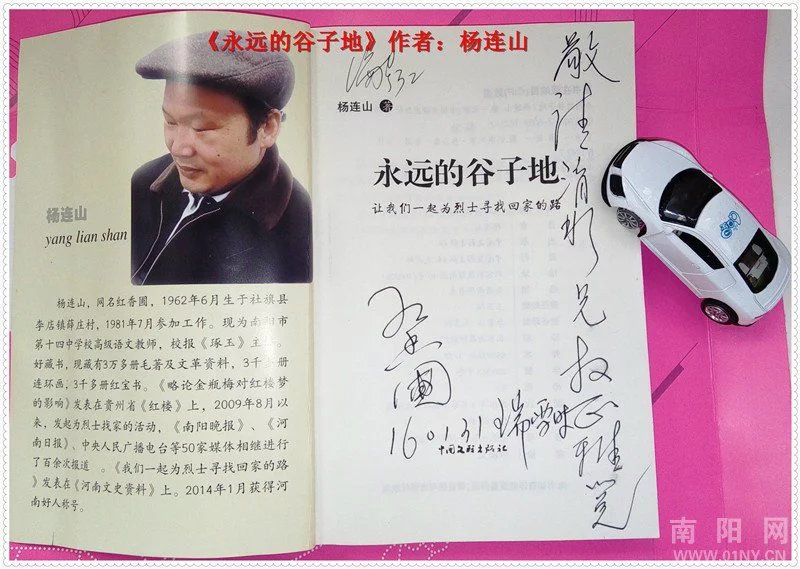 《永远的谷子地》作者：杨连山
杨连山
yang lian shan
杨连山，网名红香圃，1962年6月生于社旗县
李店镇薛庄村，1981年7月参加工作。现为南阳市
第十四中学校高级语文教师，校报《琢玉》主
好藏书，现藏有3万多册毛著及文革资料，3千多册
连环画，3千多册红宝书。《略论金瓶梅对红楼梦
的影响》发表在贵州省《红楼》上，2009年8月以
来，发起为烈士找家的活动，《南阳晚报》、《河
南日报》、中央人民广播电台等50家媒体相继进行
了百余次报道 。《我们一起为烈士寻找回家的路
》发表在《河南文史资料》上。2014年1月获得河
南好人称号。
杨连山 著
永远的谷子地
让我们一起为烈士寻找回家的路
兄
正雅览
160131瑞雪时
中国文联出版社
南阳网
WWW.01NY.CN